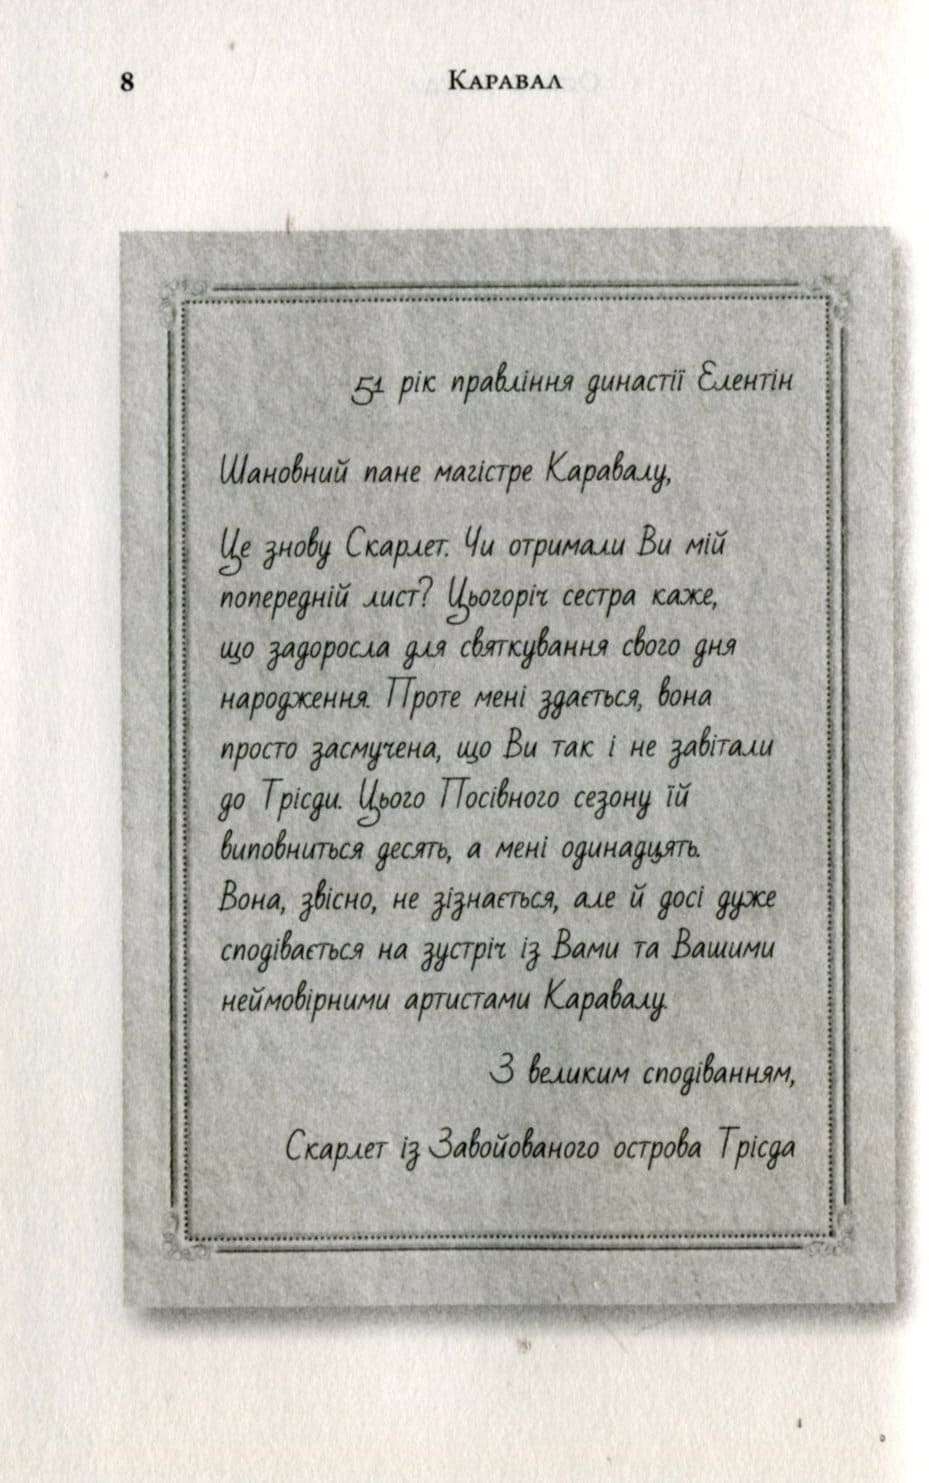 8
Каравал
51 рік правління династії Елентін
Шановний пане магістре Каравалу,
Це знову Скарлет. Чи отримали Ви мій
попередній лист? Цьогоріч сестра каже,
що задоросла для святкування свого дня
народження. Проте мені здається, вона
просто засмучена, що Ви так і не завітали
до Трісди. Цього Посівного сезону їй
виповниться десять, а мені одинадцять.
Вона, звісно, не зізнається, але й досі дуже
сподівається на зустріч із Вами та Вашими
неймовірними артистами Каравалу.
З великим сподіванням,
Скарлет із Завойованого острова Трісда